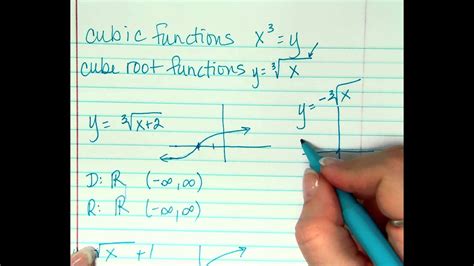 cubic functions x³ = y
cube root functions y = ∛x
y = ∛x+2
y = -∛x
D: ℝ (-∞,∞)
R: ℝ (-∞,∞)
∛x + 1